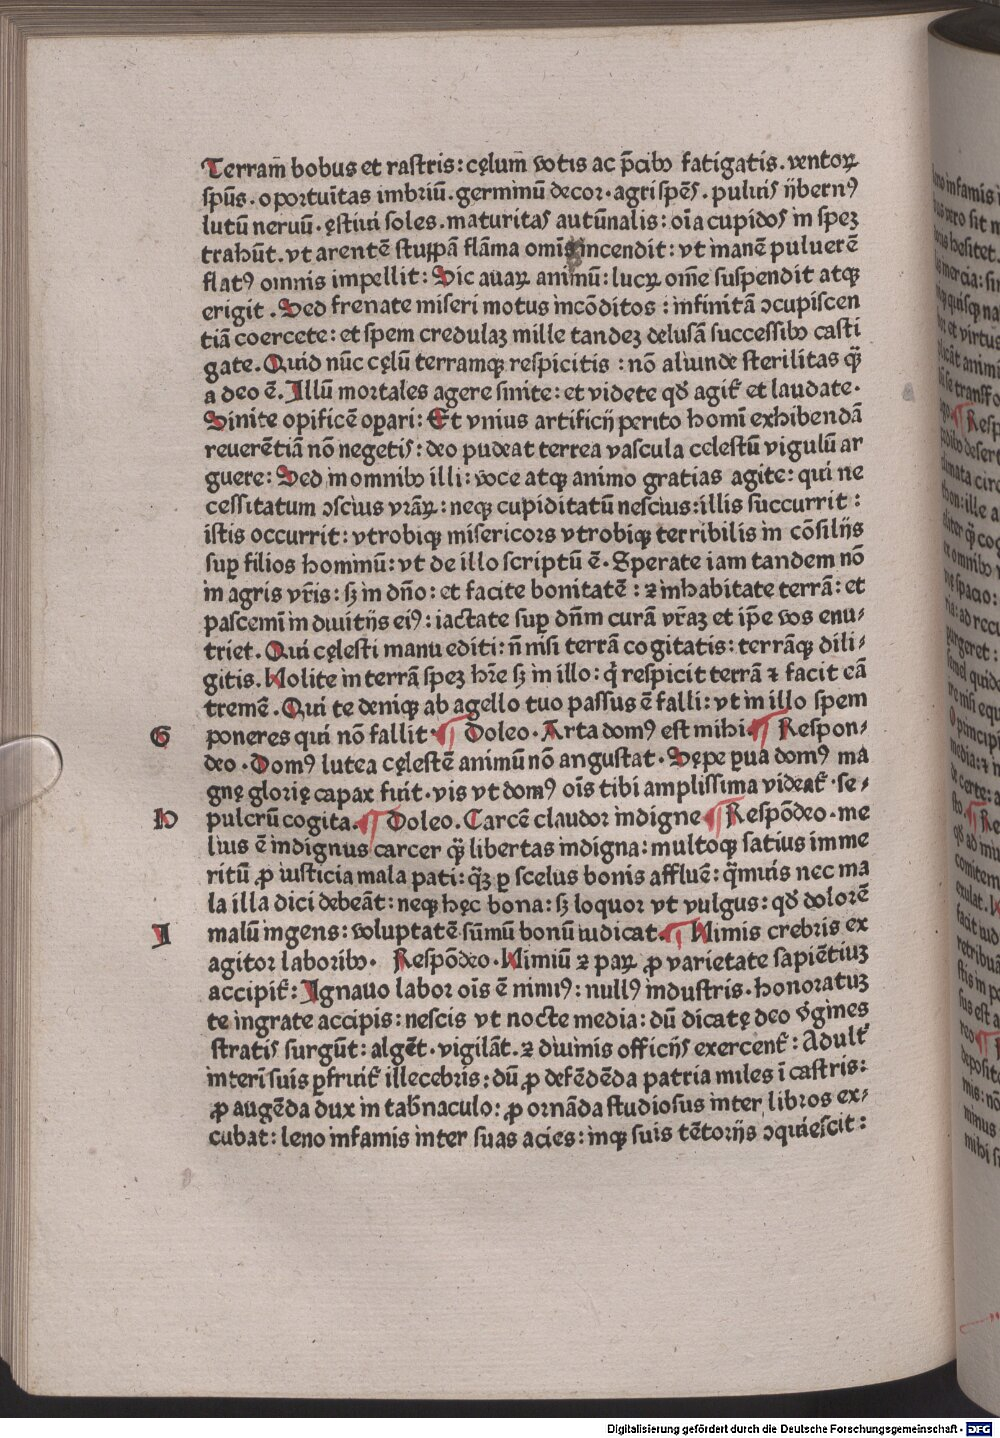 Terram̄ bobus et rastris: cęlum̄ votis ac p̄cibꝰ fatigatis. ventoꝝ
spūs. oportuītas imbriū. germinū decor. agri spēs. pulu̇is ẏbernꝰ
lutū neruū. ęstiui soles. maturitas autūnalis: oīa cupidos in speꝫ
trahūt. vt arentē stuppā flāma omīs incendit: vt manē puluerē
flatꝰ omnis impellit: Sic auaꝝ animū: lucꝝ om̄e suspendit atqꝫ
erigit. Sed frenate miseri motus incōditos: infinitā ↄcupiscen
tiā coercete: et spem credulaꝫ mille tandeꝫ delusā successibꝰ casti
gate. Quid nūc cęlū terramqꝫ respicitis: nō aliunde sterilitas qꝫ̄
a deo ē. Illū mortales agere sinite: et videte qđ agit᷑ et laudate.
Sinite opificē oꝑari: Et vnius artificij perito homī exhibendā
reuerētiā nō negetis: deo pudeat terrea vascula celestū vigulū ar
guere: Sed in omnibꝰ illi: voce atqꝫ animo gratias agite: qui ne
cessitatum ↄscius vr̄aꝝ: neqꝫ cupiditatū nescius: illis succurrit:
istis occurrit: vtrobiqꝫ misericors vtrobiqꝫ terribilis in cōsilijs
suꝑ filios hominū: vt de illo scriptū ē. Sperate iam tandem nō
in agris vr̄is: sꝫ in dn̄o: et facite bonitatē: ⁊ inhabitate terrā: et
pascemī in diuitijs eiꝰ: iactate suꝑ dn̄m curā vr̄aꝫ et ip̄e vos enu⸗
triet. Qui cęlesti manu editi: n̄ nisi terrā cogitatis: terrāqꝫ dili⸗
gitis. Nolite in terrā speꝫ hr̄e sꝫ in illo: q̇ respicit terrā ⁊ facit eā
tremē. Qui te deniqꝫ ab agello tuo passus ē falli: vt in illo spem
G poneres qui nō fallit. ¶ Doleo. Arta domꝰ est mihi. ¶ Respon⸗
deo. Domꝰ lutea cęlestē animū nō angustat. Sępe ꝑua domꝰ ma
gnę glorię capax fuit. vis vt domꝰ oīs tibi amplissima videat᷑. se⸗
H pulcrū cogita. ¶ Doleo. Carcē claudor indigne ¶ Respōdeo. me
lius ē indignus carcer qꝫ̄ libertas indigna: multoqꝫ satius imme
ritū ꝓ iusticia mala pati: qꝫ̄ ꝑ scelus bonis affluē: qꝫ̄uis nec ma
la illa dici debeāt: neqꝫ hęc bona: sꝫ loquor vt vulgus: qđ dolorē
I malū ingens: voluptatē sūmū bonū iudicat. ¶ Nimis crebris ex
agitor laboribꝰ. Respōdeo. Nimiū ⁊ paꝝ ꝓ varietate sapiētiuꝫ
accipit᷑: Ignauo labor oīs ē nimiꝰ: nullꝰ industris. honoratuꝫ
te ingrate accipis: nescis vt nocte media: dū dicatę deo v̇gines
stratis surgūt: algēt. vigilāt. ⁊ diuinis officijs exercent᷑: Adult᷑
interī suis ꝑfruit᷑ illecebris: dū ꝓ defēdēda patria miles ī castris:
ꝓ augēda dux in tab̄naculo: ꝓ ornāda studiosus inter libros ex⸗
cubat: leno infamis inter suas acies: inqꝫ suis tētorijs ↄquiescit:
Digitalisierung gefördert durch die Deutsche Forschungsgemeinschaft - DFG